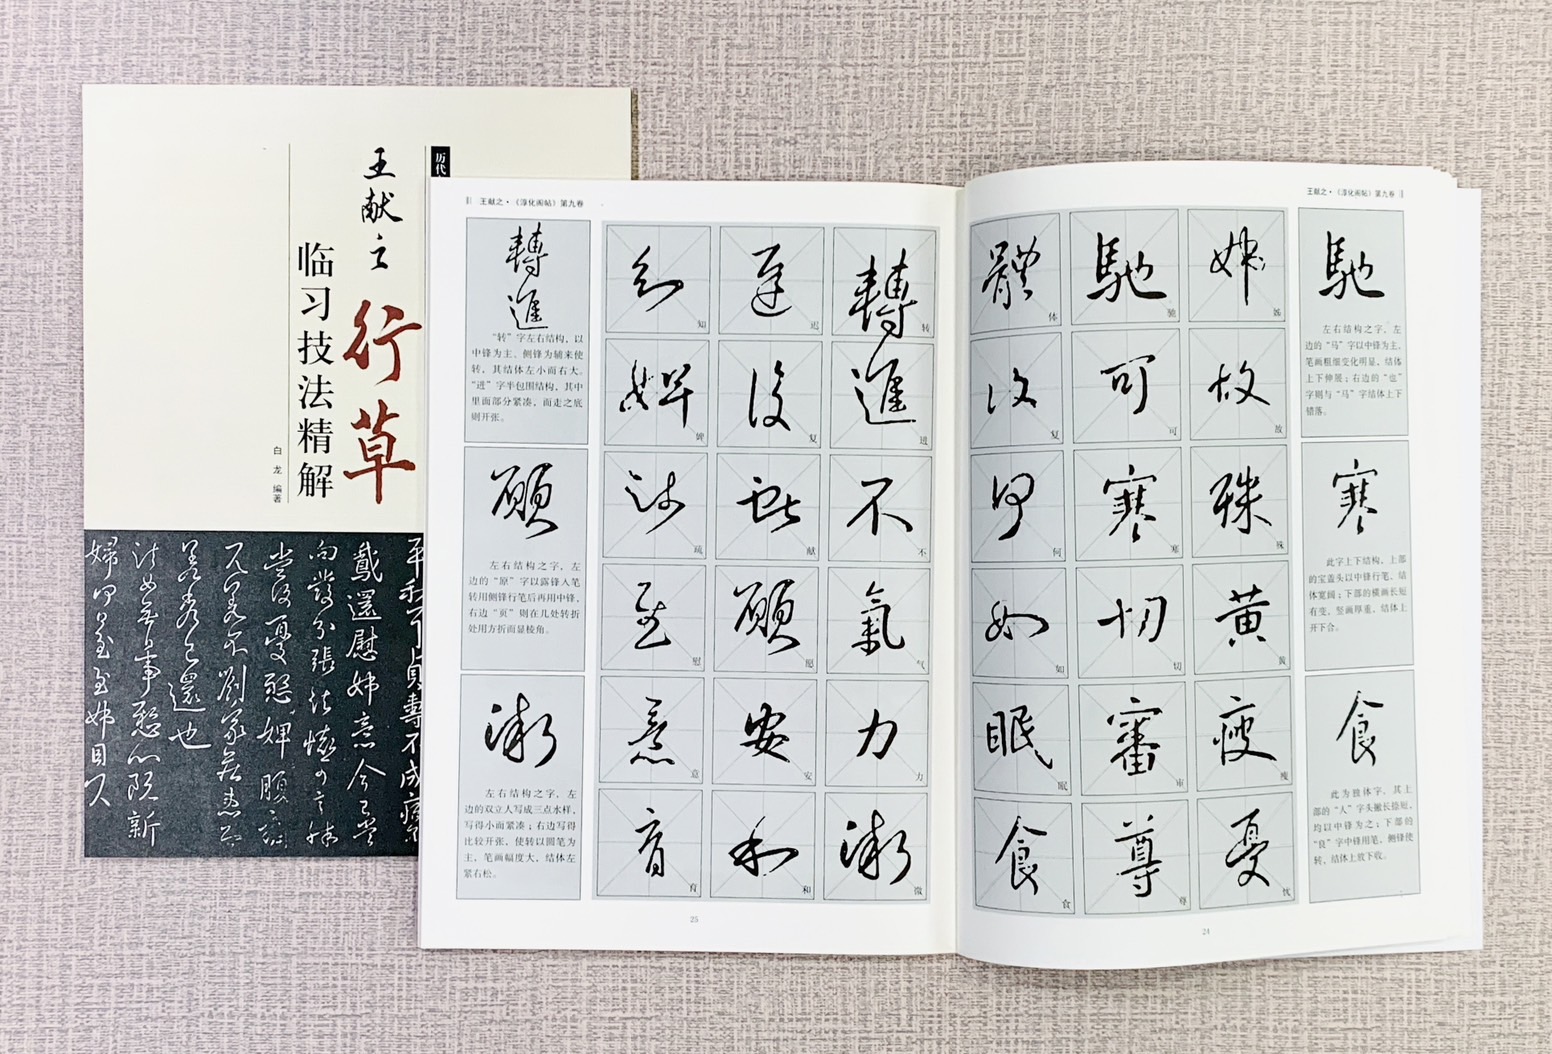 历代
王献之
行草
临习技法精解
白龙 编著
王献之·《淳化阁帖》第九卷
馳
左右结构之字,左
边的“马”字以中锋为主,
笔画粗细变化明显,结体
上下伸展;右边的“也”
字则与“马”字结体上下
错落。
寒
此字上下结构,上部
的宝盖头以中锋行笔、结
体宽阔;下部的横画长短
有变,竖画厚重,结体上
开下合。
食
此为独体字,其上
部的“人”字头撇长捺短,
均以中锋为之;下部的
“良”字中锋用笔,侧锋使
转,结体上放下收。
姊
故
殊
黄
瘦
忧
驰
可
寒
切
审
尊
体
复
何
如
眠
食
24
王献之·《淳化阁帖》第九卷
转
进
不
气
力
微
迟
复
献
愿
安
和
知
婢
疏
慰
意
育
轉進
“转”字左右结构,以
中锋为主、侧锋为辅来使
转,其结体左小而右大。
“进”字半包围结构,其中
里面部分紧凑,而走之底
则开张。
願
左右结构之字,左
边的“原”字以露锋入笔
转用侧锋行笔后再用中锋,
右边“页”则在几处转折
处用方折而显棱角。
左右结构之字,左
边的双立人写成三点水样,
写得小而紧凑;右边写得
比较开张,使转以圆笔为
主,笔画幅度大,结体左
紧右松。
25